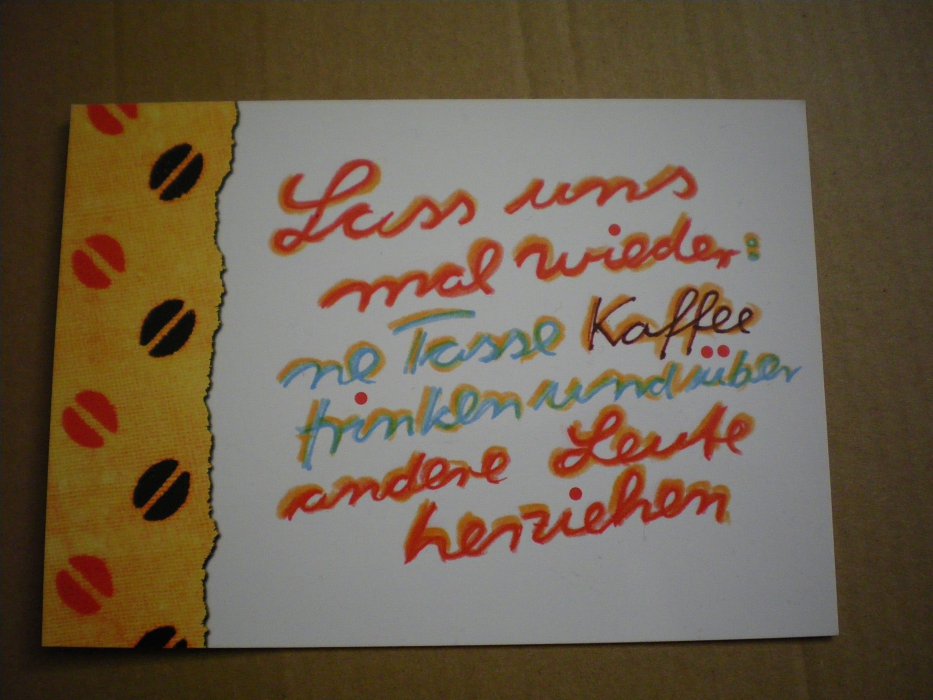 Lass uns
mal wieder:
ne Tasse Kaffee
trinken und über
andere Leute
herziehen